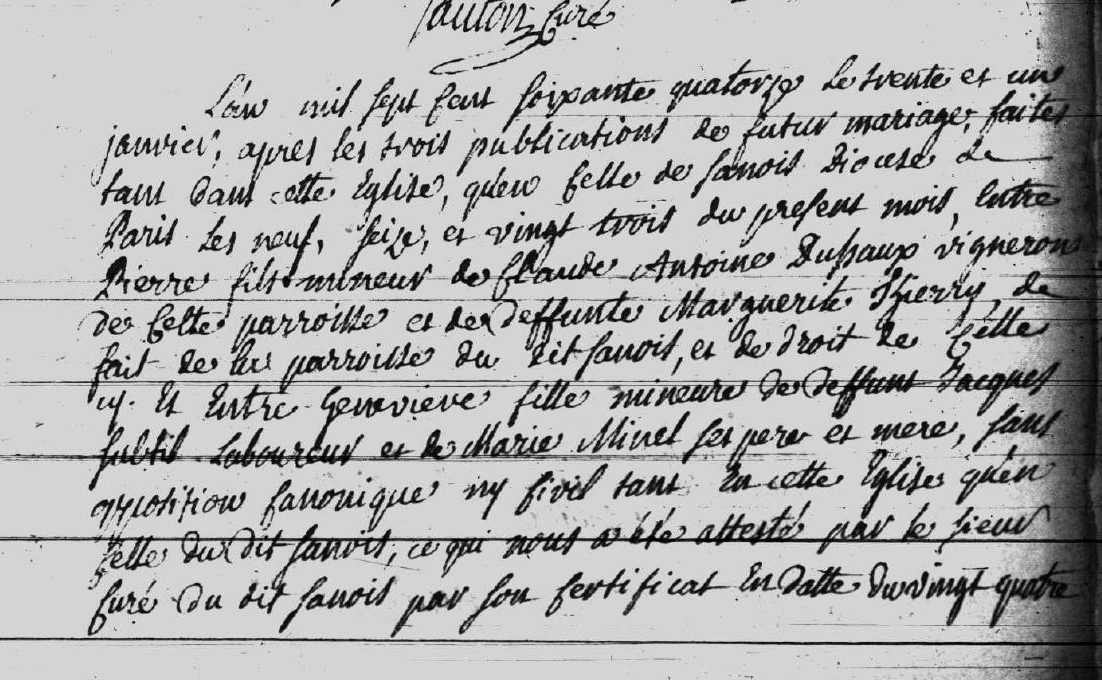 santon curé
L'an mil sept cent soixante quatorze le trente et un
janvier, apres les trois publications de futur mariage, faites
tant dans cette Eglise, qu'en celle de sanois Diocese de
Paris les neuf, seize, et vingt trois du present mois, Entre
Pierre fils mineur de Claude Antoine Duhaux vigneron
de cette parroisse et de deffunte Marguerite Thierry, de
fait de la parroisse du dit sanois, et de droit de celle
cy. Et Entre Genevieve fille mineure de deffunt Jacques
subtil Laboureur et de Marie Minel ses pere et mere, sans
opposition canonique ny civil tant En cette Eglise qu'en
celle du dit sanois, ce qui nous a été attesté par le sieur
curé du dit sanois par son certificat En datte du vingt quatre